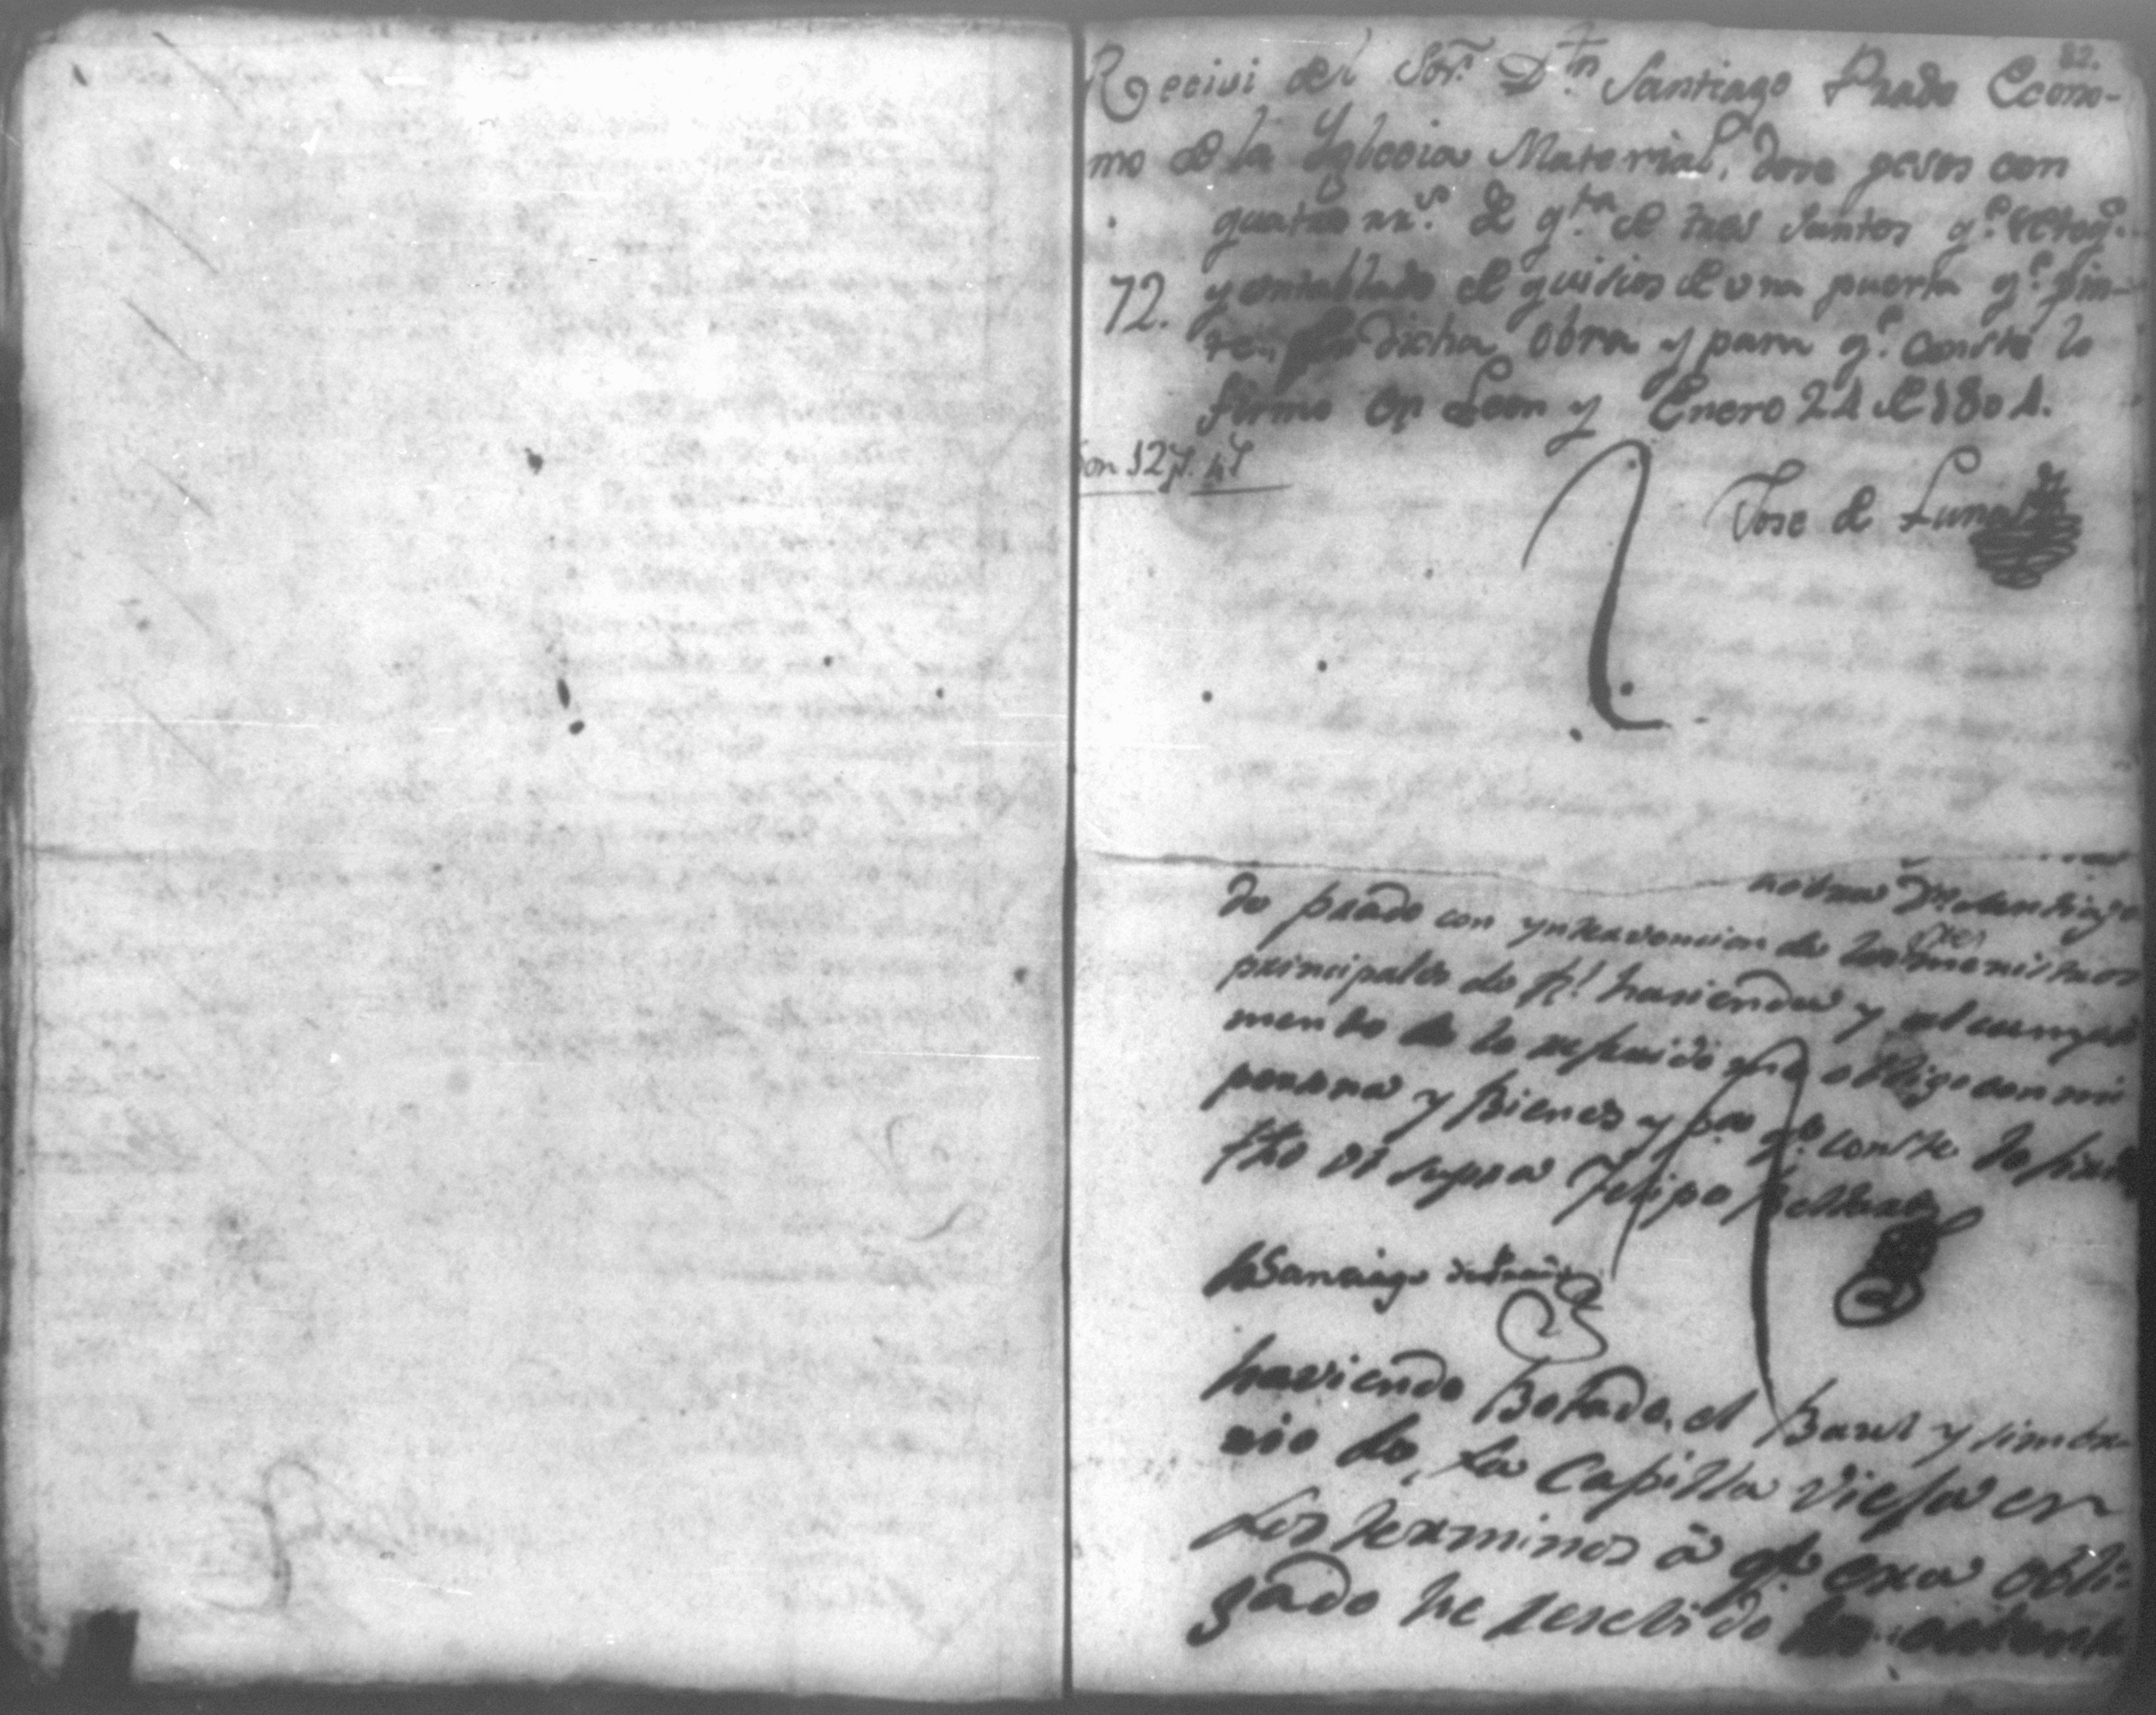 82.
Recivi del Sor. Dn. Santiago Prado Econo-
mo de la Yglecia Material, dose pesos con
quatro rrs. de qta de tres Santos q.e retoq.e
72. y entablado de quisios de una puerta q.e pin-
te, dicha obra y para q.e conste lo
firmo en Leon y Enero 24 de 1804.
Son 12 p. 4 r
Jose de Luna
Dn Santiago
de prado con yntervencion de los menistros
principales de Rl. hasienda y al cumpli
mento de lo referido me obligo con mi
persona y Bienes y pa q.e conste lo firme
fho ut supra Felipe Beltran
Santiago de Prado
haviendo Botado, el Baul y simbo-
rio de, La Capilla Viefa en
Los terminos â qe. era obli-
gado he resebido